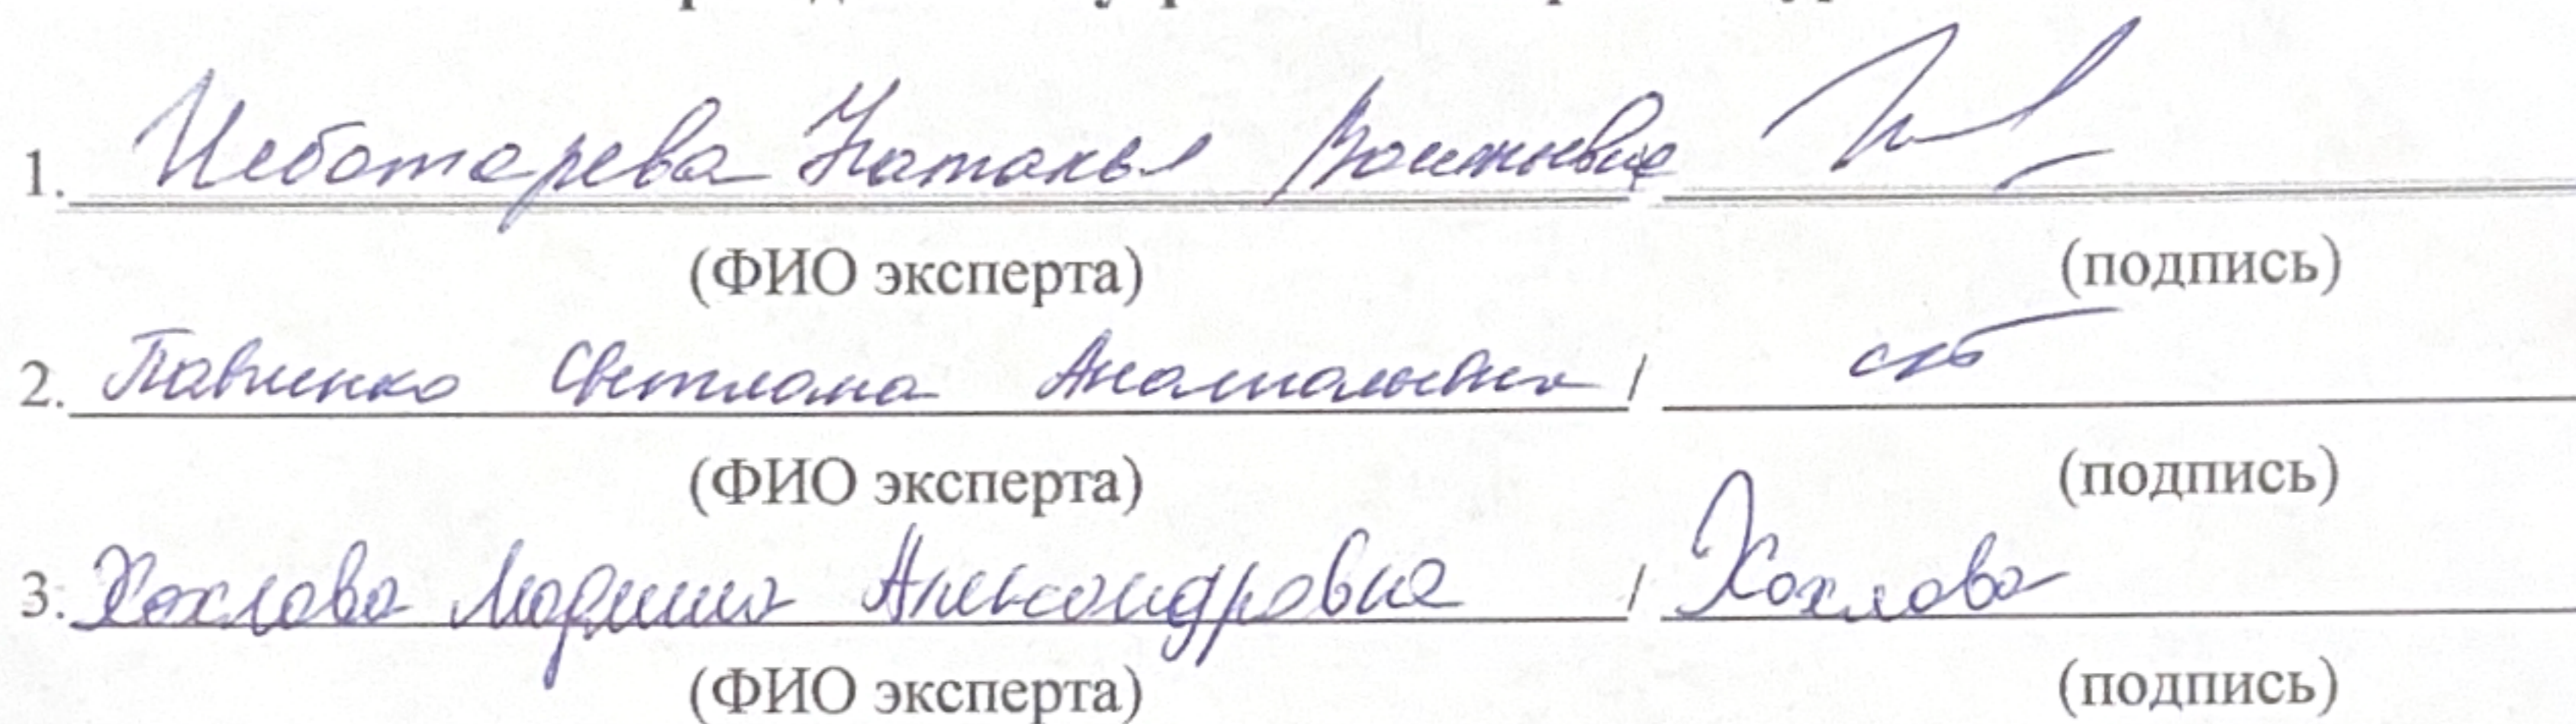 1. Чеботарева Наталья Васильевна
(ФИО эксперта) (подпись)
2. Павленко Светлана Анатольевна /
(ФИО эксперта) (подпись)
3. Хохлова Марина Александровна / Хохлова
(ФИО эксперта) (подпись)